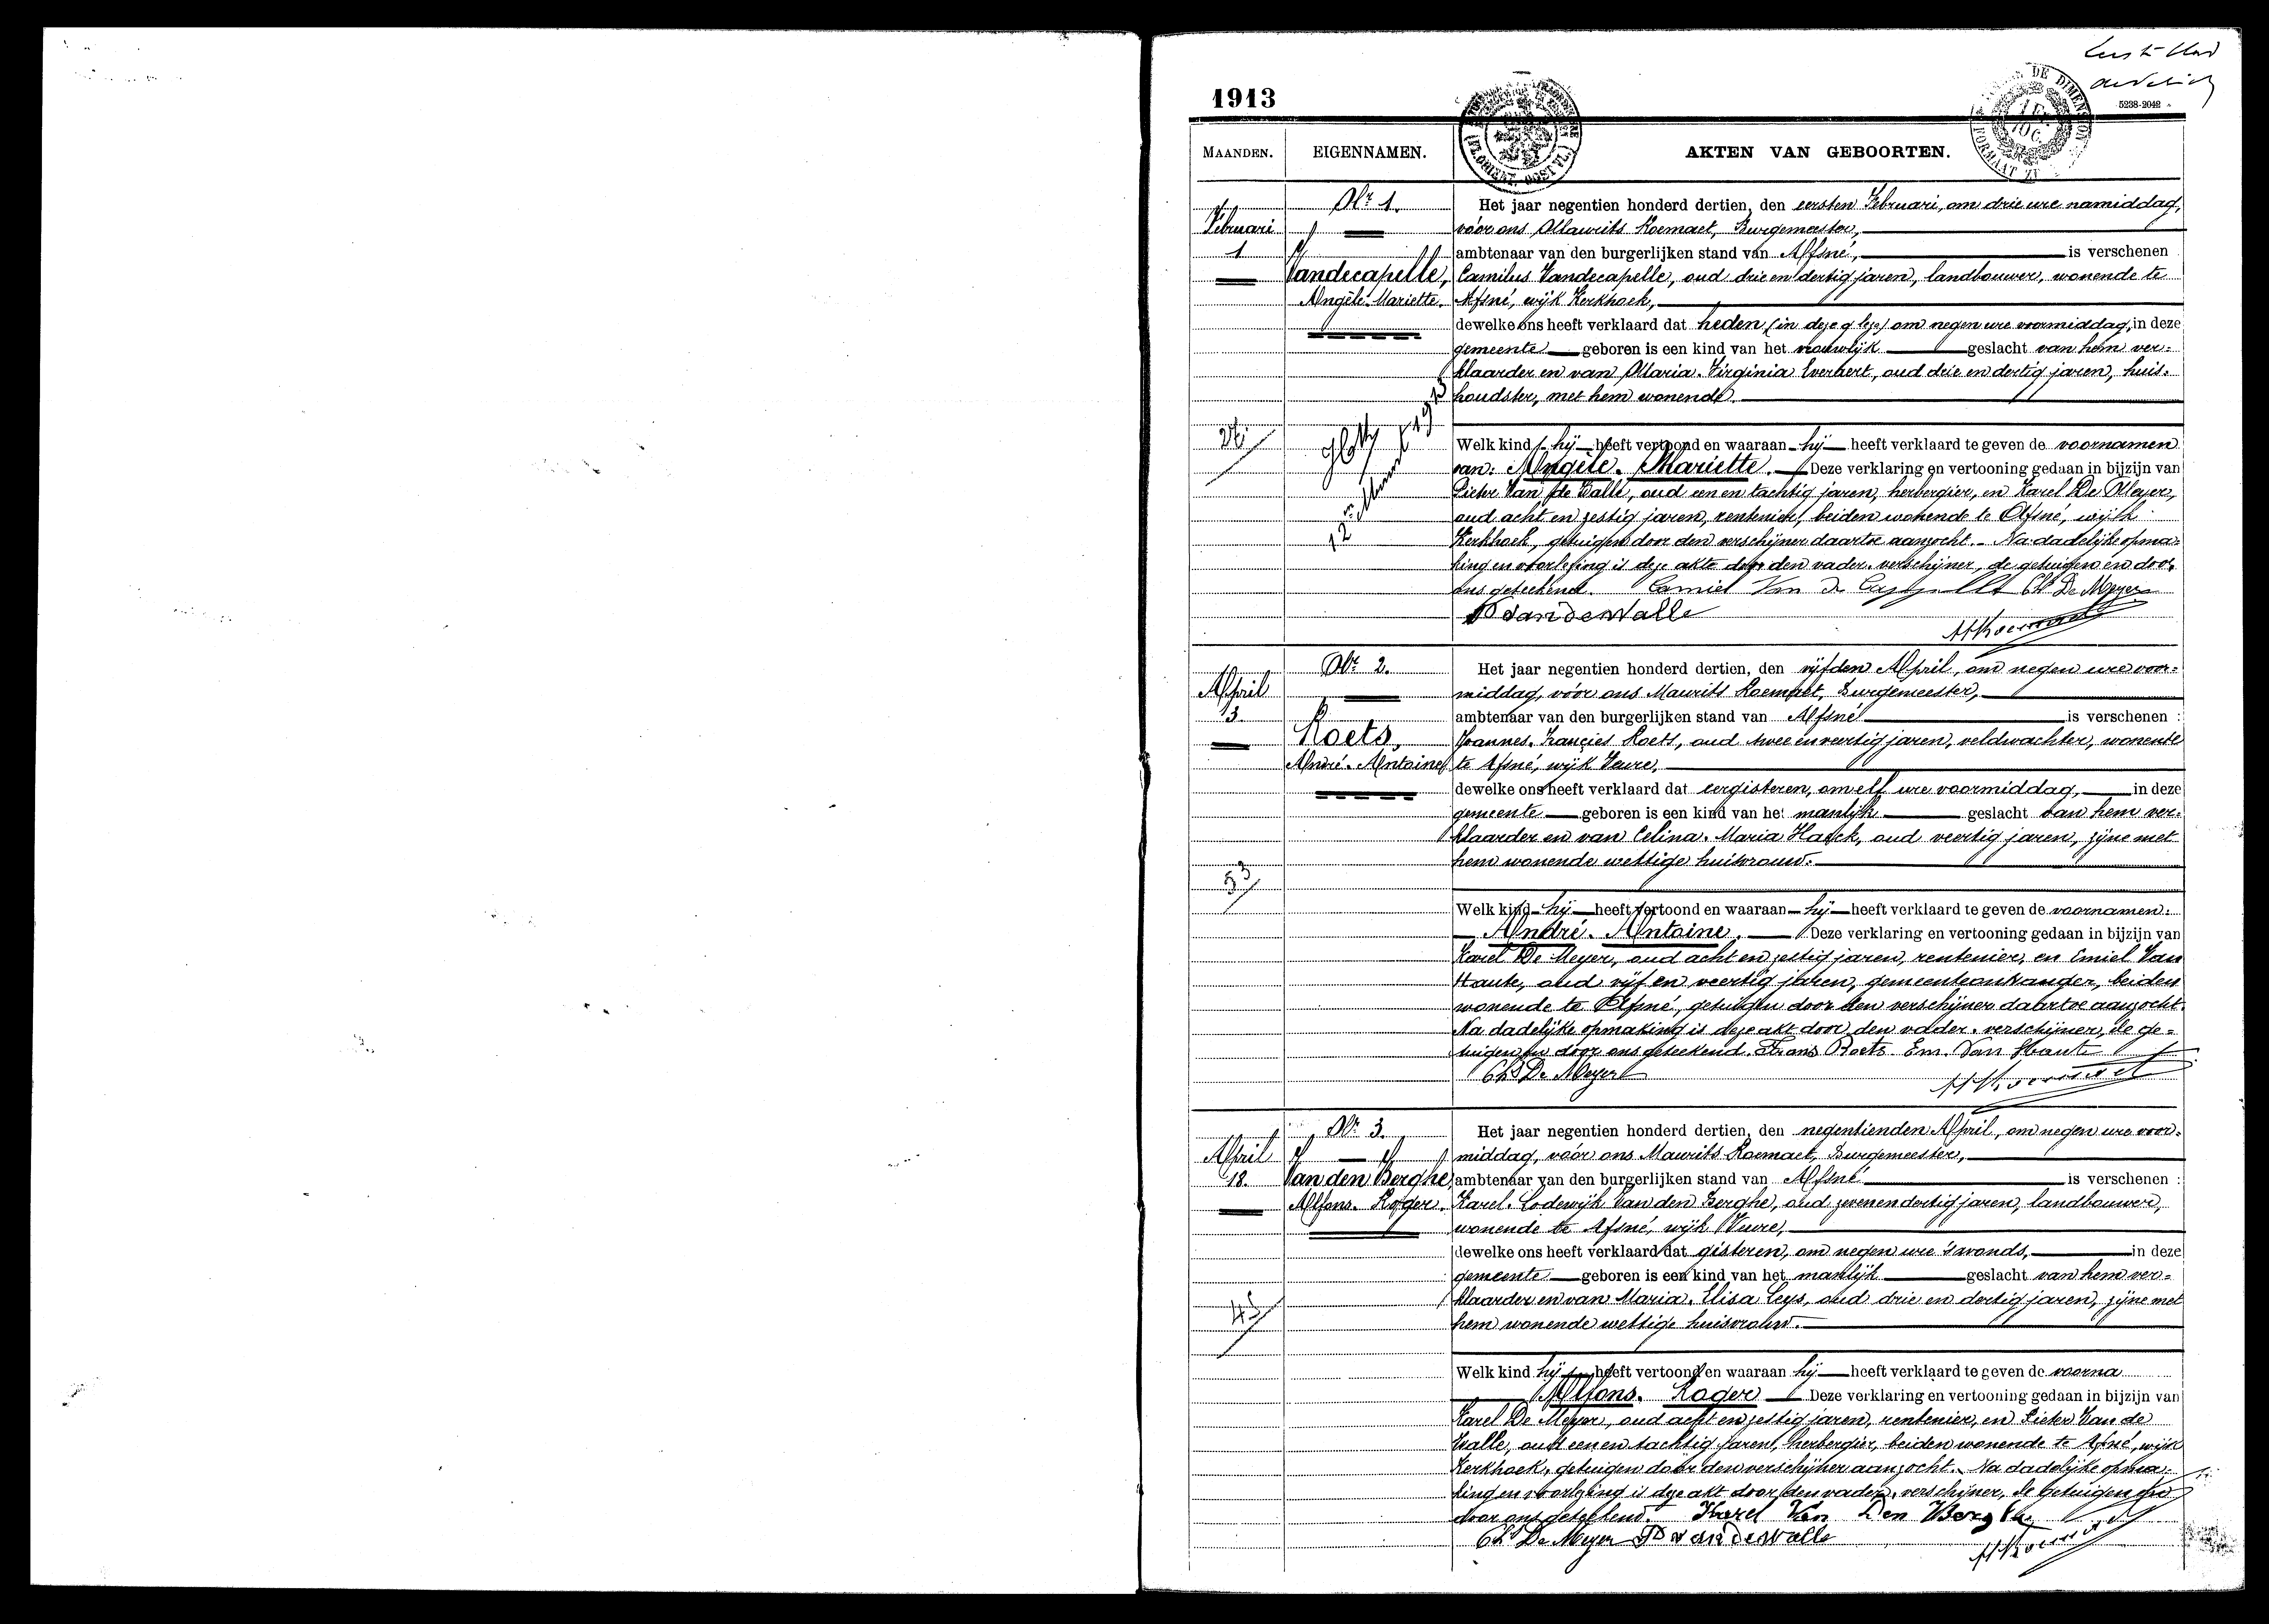 1913
5238-2042
MAANDEN.
EIGENNAMEN.
AKTEN VAN GEBOORTEN.
Februari
1
Nr 1.
Vandecapelle,
Angèle-Mariette.
Het jaar negentien honderd dertien, den eersten Februari, om drie ure namiddag,
vóór ons Maurits Roemaet, Burgemeester,
ambtenaar van den burgerlijken stand van Afsné, is verschenen
Camilus Vandecapelle, oud drie en dertig jaren, landbouwer, wonende te
Afsné, wijk Kerkhoek,
dewelke ons heeft verklaard dat heden om negen ure voormiddag, in deze
gemeente geboren is een kind van het vrouwlijk geslacht van hem ver-
klaarder en van Maria-Virginia Everaert, oud drie en dertig jaren, huis-
houdster, met hem wonende.
Welk kind hij heeft vertoond en waaraan hij heeft verklaard te geven de voornamen
van: Angèle-Mariette. Deze verklaring en vertooning gedaan in bijzijn van
Pieter Van de Walle, oud een en tachtig jaren, herbergier, en Karel De Meyer,
oud acht en zestig jaren, rentenier, beiden wonende te Afsné, wijk
Kerkhoek, getuigen door den verschijner daartoe aanzocht. Na dadelijke opma-
king en voorlezing is deze akte door den vader-verschijner, de getuigen en door
ons geteekend. Camiel Van de Capelle Ch De Meyer
P Van de Walle
April
3
Nr 2.
Roets,
André-Antoine
33
Het jaar negentien honderd dertien, den vijfden April, om negen ure voor-
middag, vóór ons Maurits Roemaet, Burgemeester,
ambtenaar van den burgerlijken stand van Afsné is verschenen :
Joannes-Francies Roets, oud twee en veertig jaren, veldwachter, wonende
te Afsné, wijk Veure,
dewelke ons heeft verklaard dat eergisteren, om elf ure voormiddag, in deze
gemeente geboren is een kind van het manlijk geslacht van hem ver-
klaarder en van Celina-Maria Haeck, oud veertig jaren, zijne met
hem wonende wettige huisvrouw.
Welk kind hij heeft vertoond en waaraan hij heeft verklaard te geven de voornamen:
André-Antoine. Deze verklaring en vertooning gedaan in bijzijn van
Karel De Meyer, oud acht en zestig jaren, rentenier, en Emiel Van
Haute, oud vijf en veertig jaren, gemeenteontvanger, beiden
wonende te Afsné, getuigen door den verschijner daartoe aanzocht.
Na dadelijke opmaking is deze akt door den vader-verschijner, de ge-
tuigen en door ons geteekend. Frans Roets Em. Van Haute
Ch De Meyer
April
18.
Nr 3.
Van den Berghe,
Alfons-Roger.
45
Het jaar negentien honderd dertien, den negentienden April, om negen ure voor-
middag, vóór ons Maurits Roemaet, Burgemeester,
ambtenaar van den burgerlijken stand van Afsné is verschenen :
Karel-Lodewijk Van den Berghe, oud zeven en dertig jaren, landbouwer,
wonende te Afsné, wijk Veure,
dewelke ons heeft verklaard dat gisteren, om negen ure 's avonds, in deze
gemeente geboren is een kind van het manlijk geslacht van hem ver-
klaarder en van Maria-Elisa Leys, oud drie en dertig jaren, zijne met
hem wonende wettige huisvrouw.
Welk kind hij heeft vertoond en waaraan hij heeft verklaard te geven de voorna
Alfons-Roger Deze verklaring en vertooning gedaan in bijzijn van
Karel De Meyer, oud acht en zestig jaren, rentenier, en Pieter Van de
Walle, oud een en tachtig jaren, herbergier, beiden wonende te Afsné, wijk
Kerkhoek, getuigen door den verschijner aanzocht. Na dadelijke opma-
king en voorlezing is deze akt door den vader-verschijner, de getuigen en
door ons geteekend. Karel Van Den Berghe
Ch De Meyer P Van de Walle